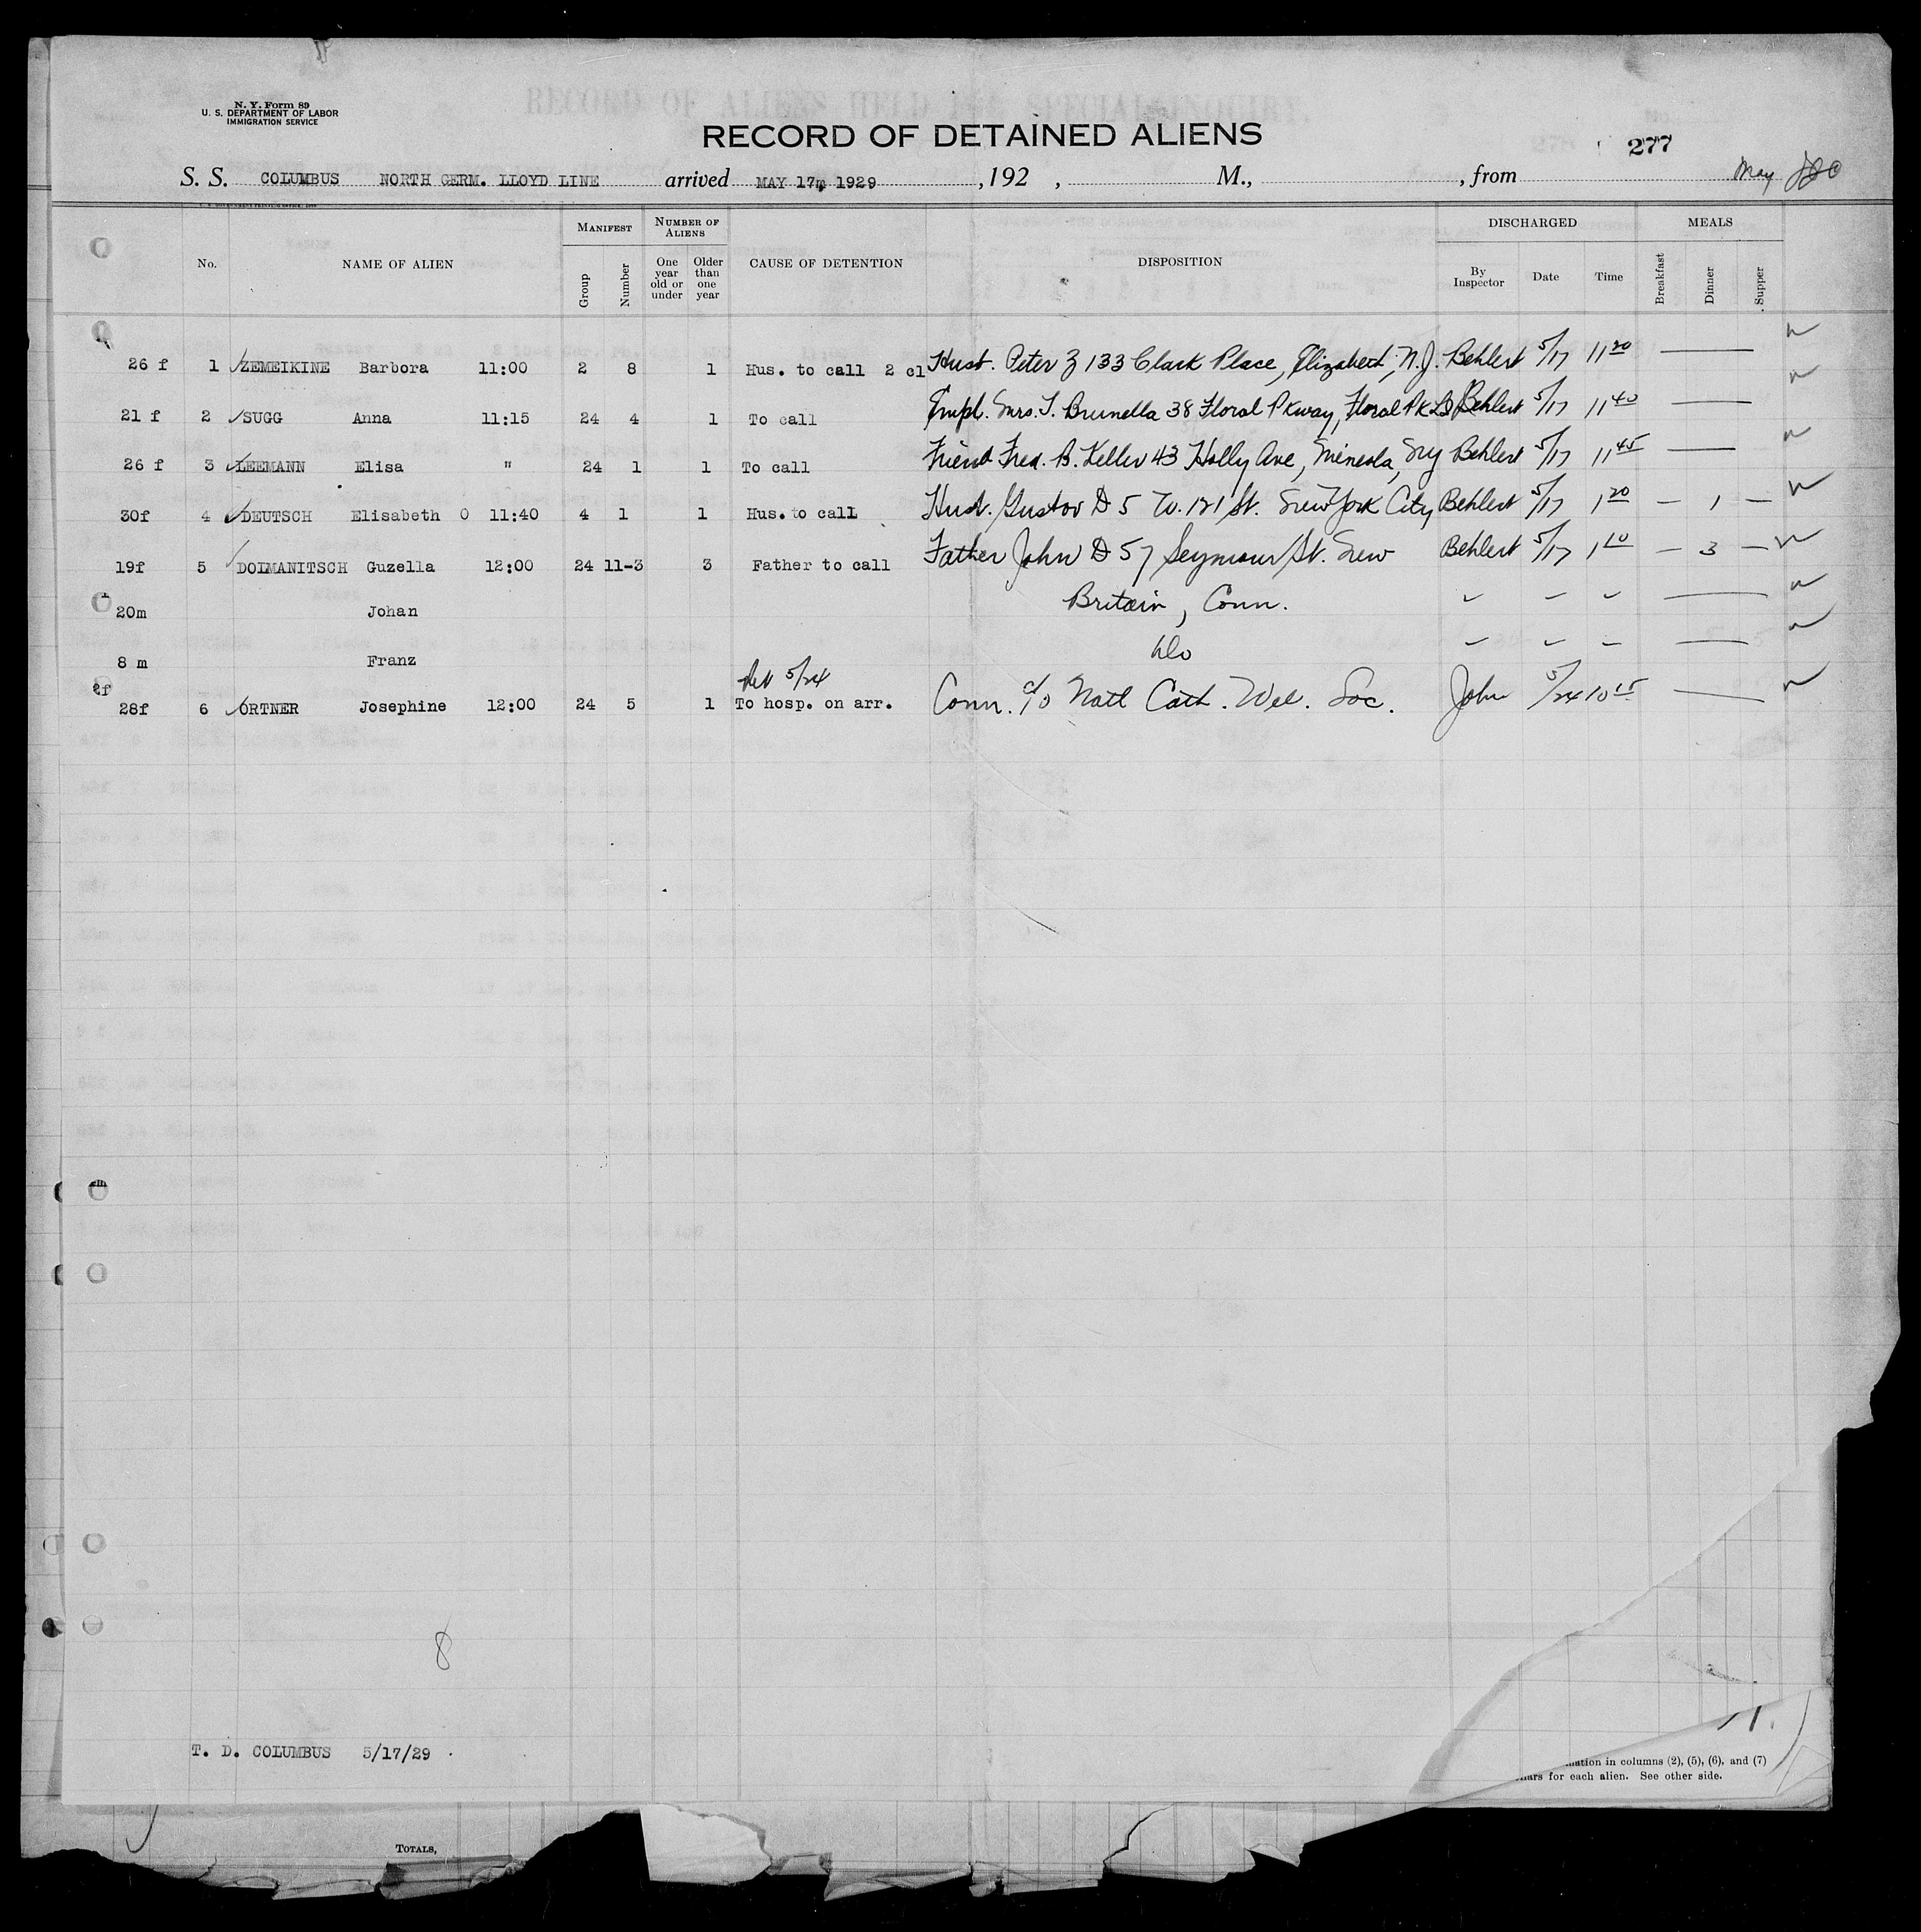 N. Y. Form 89
U. S. DEPARTMENT OF LABOR
IMMIGRATION SERVICE
RECORD OF DETAINED ALIENS
277
S. S. COLUMBUS NORTH GERM. LLOYD LINE arrived MAY 17, 1929 , 192 , M., , from May
No. NAME OF ALIEN MANIFEST Group Number NUMBER OF ALIENS One year old or under Older than one year CAUSE OF DETENTION DISPOSITION DISCHARGED By Inspector Date Time MEALS Breakfast Dinner Supper
26 f 1 ZEMEIKINE Barbora 11:00 2 8 1 Hus. to call 2 cl Hust. Peter Z 133 Clark Place, Elizabeth, N.J. Behlert 5/17 11 20
21 f 2 SUGG Anna 11:15 24 4 1 To call Empl. Mrs. T. Brunella 38 Floral Pkway, Floral Pk LI Behlert 5/17 11 40
26 f 3 LEEMANN Elisa " 24 1 1 To call Friend Fred. B. Keller 43 Holly Ave, Mineola, NY Behlert 5/17 11 45
30f 4 DEUTSCH Elisabeth O 11:40 4 1 1 Hus. to call Hust. Gustov D 5 W. 121 St. New York City Behlert 5/17 1 20 — 1 —
19f 5 DOIMANITSCH Guzella 12:00 24 11-3 3 Father to call Father John D 57 Seymour St. New Behlert 5/17 1 10 — 3 —
20m Johan Britain, Conn.
8 m Franz Do
2f
5/24
28f 6 ORTNER Josephine 12:00 24 5 1 To hosp. on arr. Conn. c/o Natl Cath. Wel. Soc. John 5/24 10 15
8
T. D. COLUMBUS 5/17/29
mation in columns (2), (5), (6), and (7)
for each alien. See other side.
TOTALS,